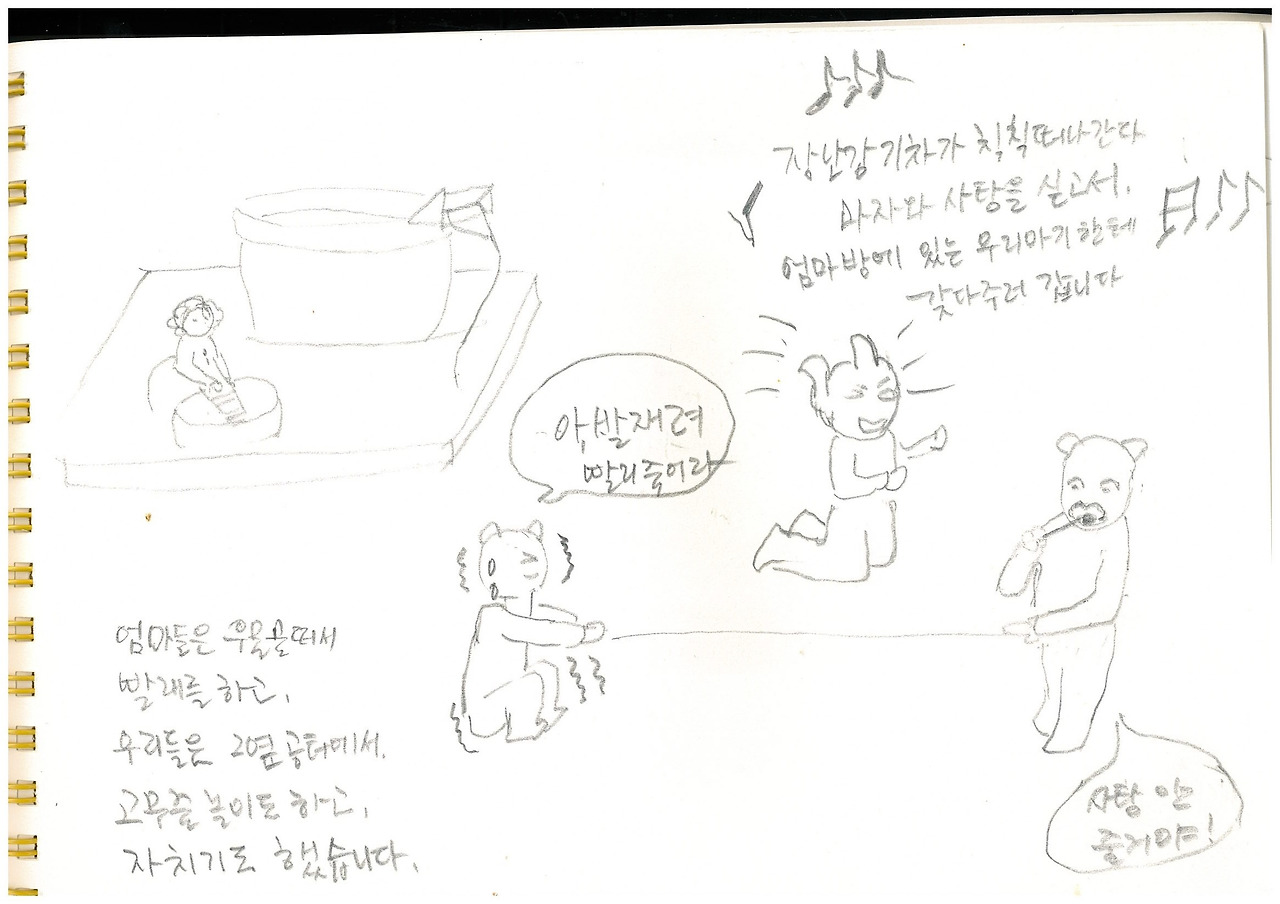 장난감 기차가 칙칙떠나간다
과자와 사탕을 실고서.
엄마방에 있는 우리아기한테
갖다주러 갑니다
아, 발재려
빨리죽어라
엄마들은 우물골떠서
빨래를 하고,
우리들은 그옆 공터에서.
고무줄 놀이도 하고,
자치기도 했습니다.
사탕 안
줄거야!